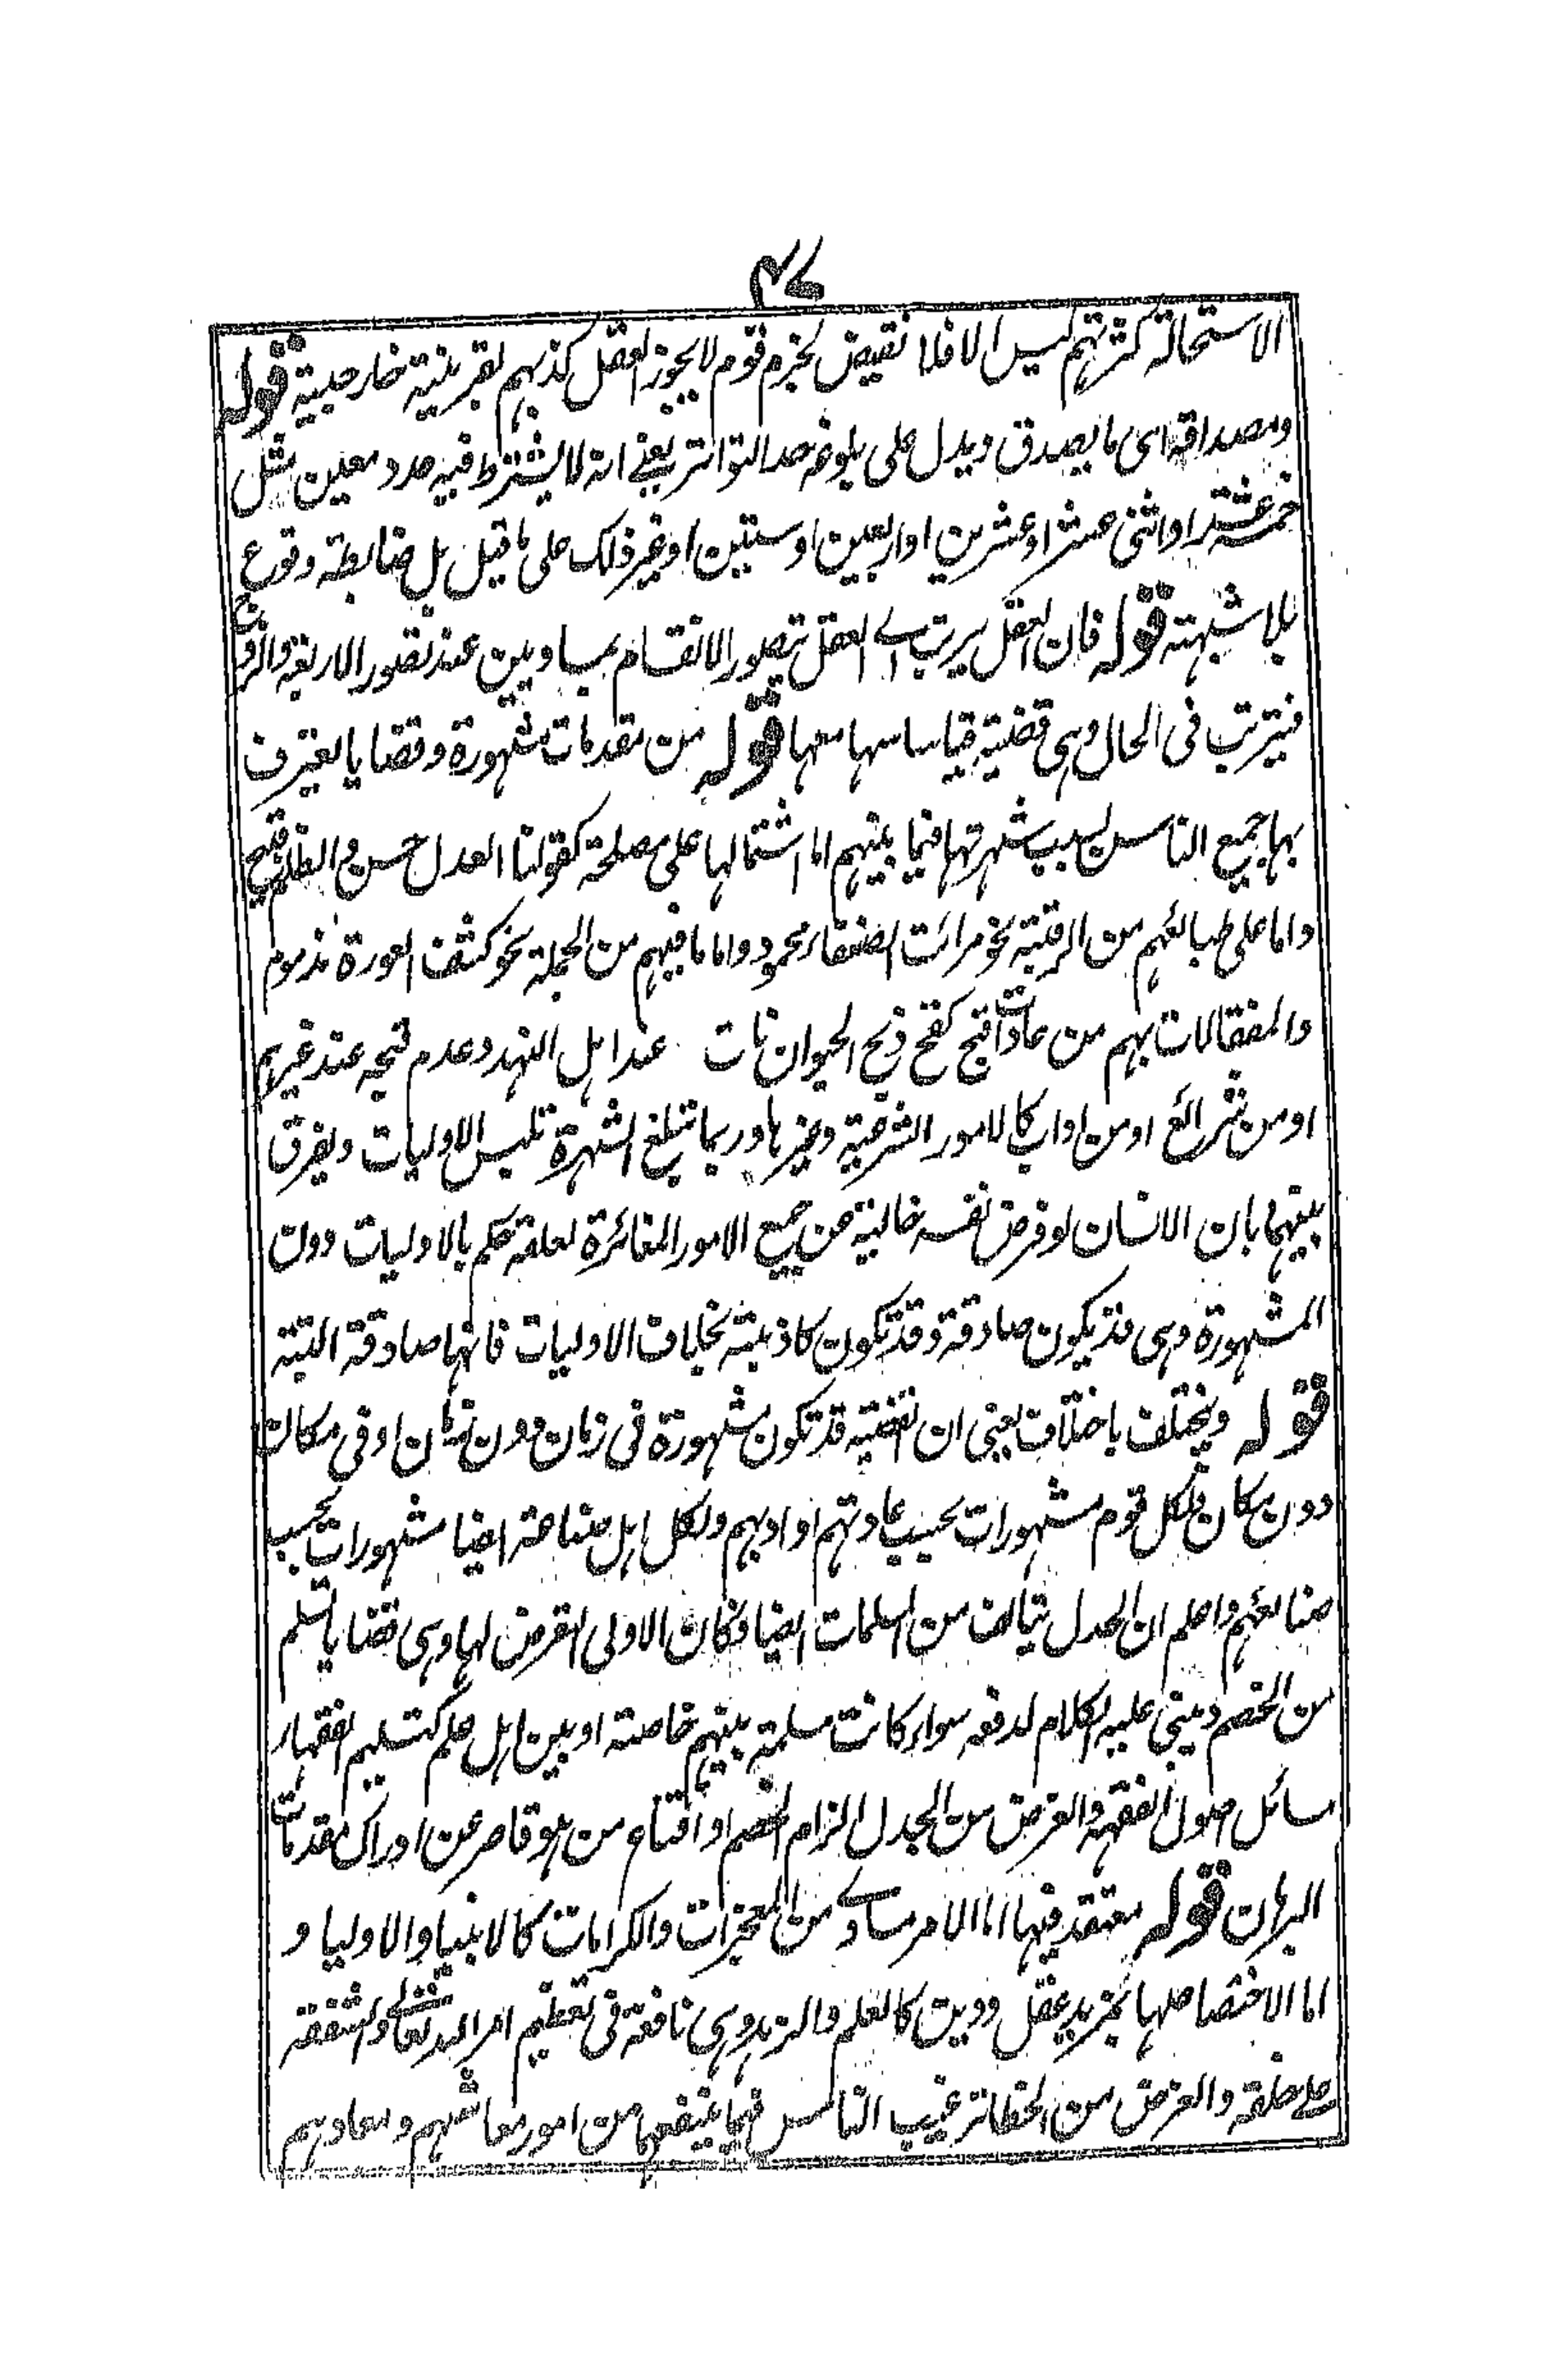 ۴۷
الاستحالة كثرتهم ليس الا فلا نقيض لجزم قوم لا يجوز العقل كذبهم لقرينية خارجية قوله
ومصداقه اى ما يصدق ويدل على بلوغه حد التواتر يعنے انه لا يشترط فيه عدد معين مثل
خمسة عشر او اثنى عشر او عشرين او اربعين او ستين او غير ذلك على ما قيل بل ضابطة وقوع
بلا شبهته قوله فان العقل يرتب اے العقل تصور الانقسام بمساويين عند تصور الاربعة والزوج
فيترتب فى الحال وهى قضية قياساسها معها قوله من مقدمات مشهورة وقضايا يعترف
بها جميع الناس بسبب شهرتها فيما بينهم اما اشتمالها على مصلحة كقولنا العدل حسن والظلم قبيح
واما على طبائعهم من الرقتية نحو مرائت الضعفاء محمود واما ما فيهم من الحملة نحو كشف العورة مذموم
والمفقالات بهم من عادات اقبح كقبح ذبح الحيوانات عند اهل الهند وعدم قبحه عند غيرهم
او من شرائع او من اداب كالامور الشرعية وغيرها وربما تبلغ الشهرة تلبس الاوليات ويفرق
بينهما بان الانسان لو فرض نفسه خالية عن جميع الامور المغائرة لعلقه حكم بالاوليات دون
المشهورة وهى قد يكون صادقة وقد تكون كاذبته بخلاف الاوليات فانها صادقة البتة
قوله ويختلف باختلاف يعنى ان القضية قد تكون مشهورة فى زمان دون زمان او فى مكان
دون مكان فلكل قوم مشهورات بحسب عادتهم او ادبهم ولكل اهل صناعة ايضا مشهورات بحسب
صنائعهم واعلم ان الجدل يتألف من المسلمات ايضا وكان الاولى التعرض لها وهى قضايا تسلم
من الخصم ويبنى عليه الكلام لدفعه سواء كانت مسلمة بينهم خاصة او بين اهل علم كتسليم الفقهاء
مسائل اصول الفقه والغرض من الجدل الزام الخصم او اقناع من هو قاصر عن ادراك مقدمات
البرهان قوله معتقد فيها اما الامر سماوے من المعجزات والكرامات كالانبيا والاوليا و
اما الاختصاصها بمزيد عقل ودين كالعلم والزهد وهى نافعة فى تعظيم امر الله تعالى والشفقة
علے خلقه والغرض من الخطابة ترغيب الناس فيما ينفعهم من امور معاشهم ومعادهم